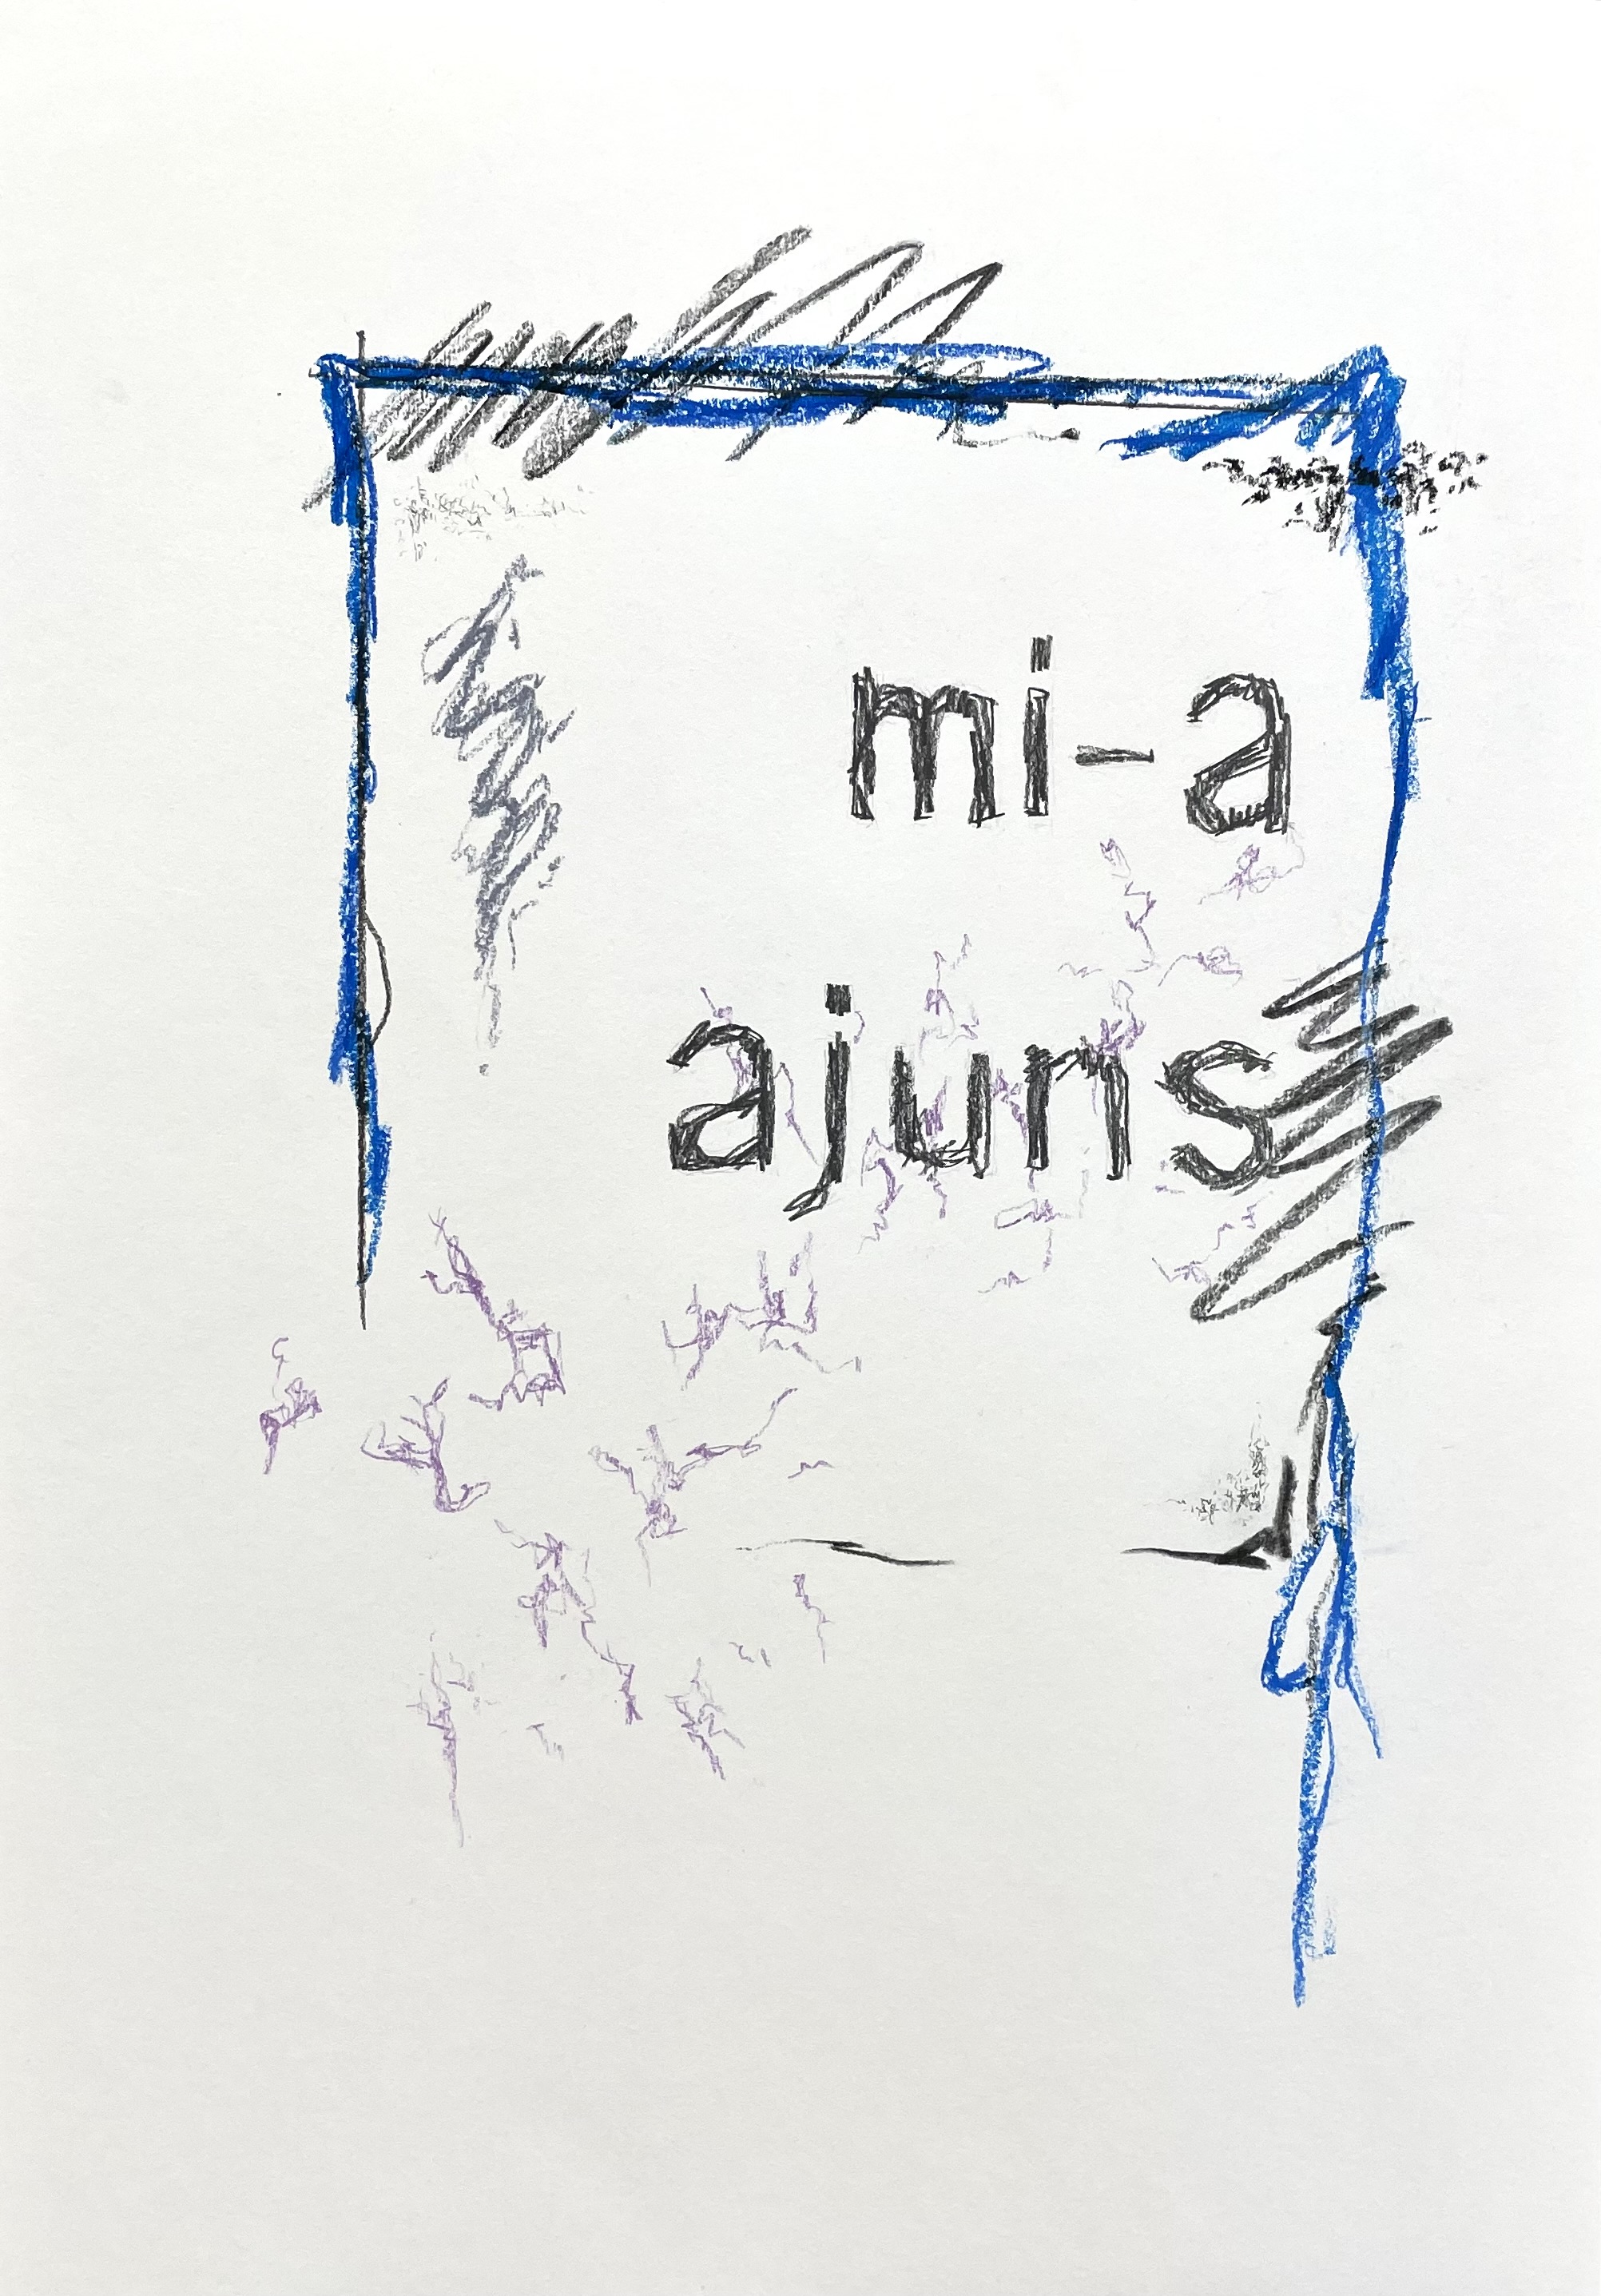 mi-a
ajuns